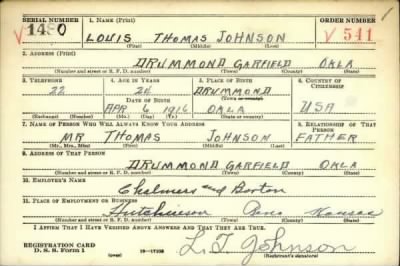 SERIAL NUMBER 1. NAME (Print) ORDER NUMBER
V 1480 LOUIS THOMAS JOHNSON V 541
(First) (Middle) (Last)
2. ADDRESS (Print)
DRUMMOND GARFIELD OKLA
(Number and street or R. F. D. number) (Town) (County) (State)
3. TELEPHONE 4. AGE IN YEARS 5. PLACE OF BIRTH 6. COUNTRY OF CITIZENSHIP
22 24 DRUMMOND
DATE OF BIRTH (Town or county)
APR 6 1916 OKLA USA
(Exchange) (Number) (Mo.) (Day) (Yr.) (State or country)
7. NAME OF PERSON WHO WILL ALWAYS KNOW YOUR ADDRESS 8. RELATIONSHIP OF THAT PERSON
MR THOMAS JOHNSON FATHER
(Mr., Mrs., Miss) (First) (Middle) (Last)
9. ADDRESS OF THAT PERSON
DRUMMOND GARFIELD OKLA
(Number and street or R. F. D. number) (Town) (County) (State)
10. EMPLOYER'S NAME
Chalmers and Borton
11. PLACE OF EMPLOYMENT OR BUSINESS
Hutchinson Reno Kansas
(Number and street or R. F. D. number) (Town) (County) (State)
I AFFIRM THAT I HAVE VERIFIED ABOVE ANSWERS AND THAT THEY ARE TRUE.
REGISTRATION CARD
D. S. S. Form 1 (over) L. T. Johnson
(Registrant's signature)